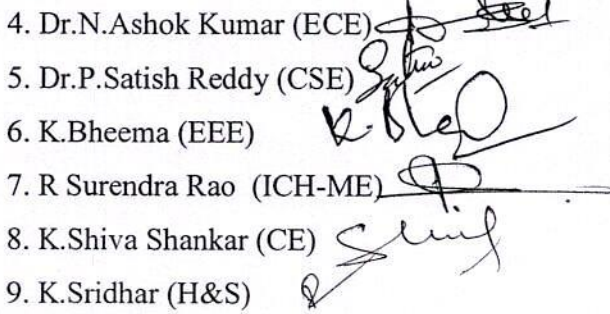 4. Dr.N.Ashok Kumar (ECE)
5. Dr.P.Satish Reddy (CSE)
6. K.Bheema (EEE)
7. R Surendra Rao (ICH-ME)
8. K.Shiva Shankar (CE)
9. K.Sridhar (H&S)